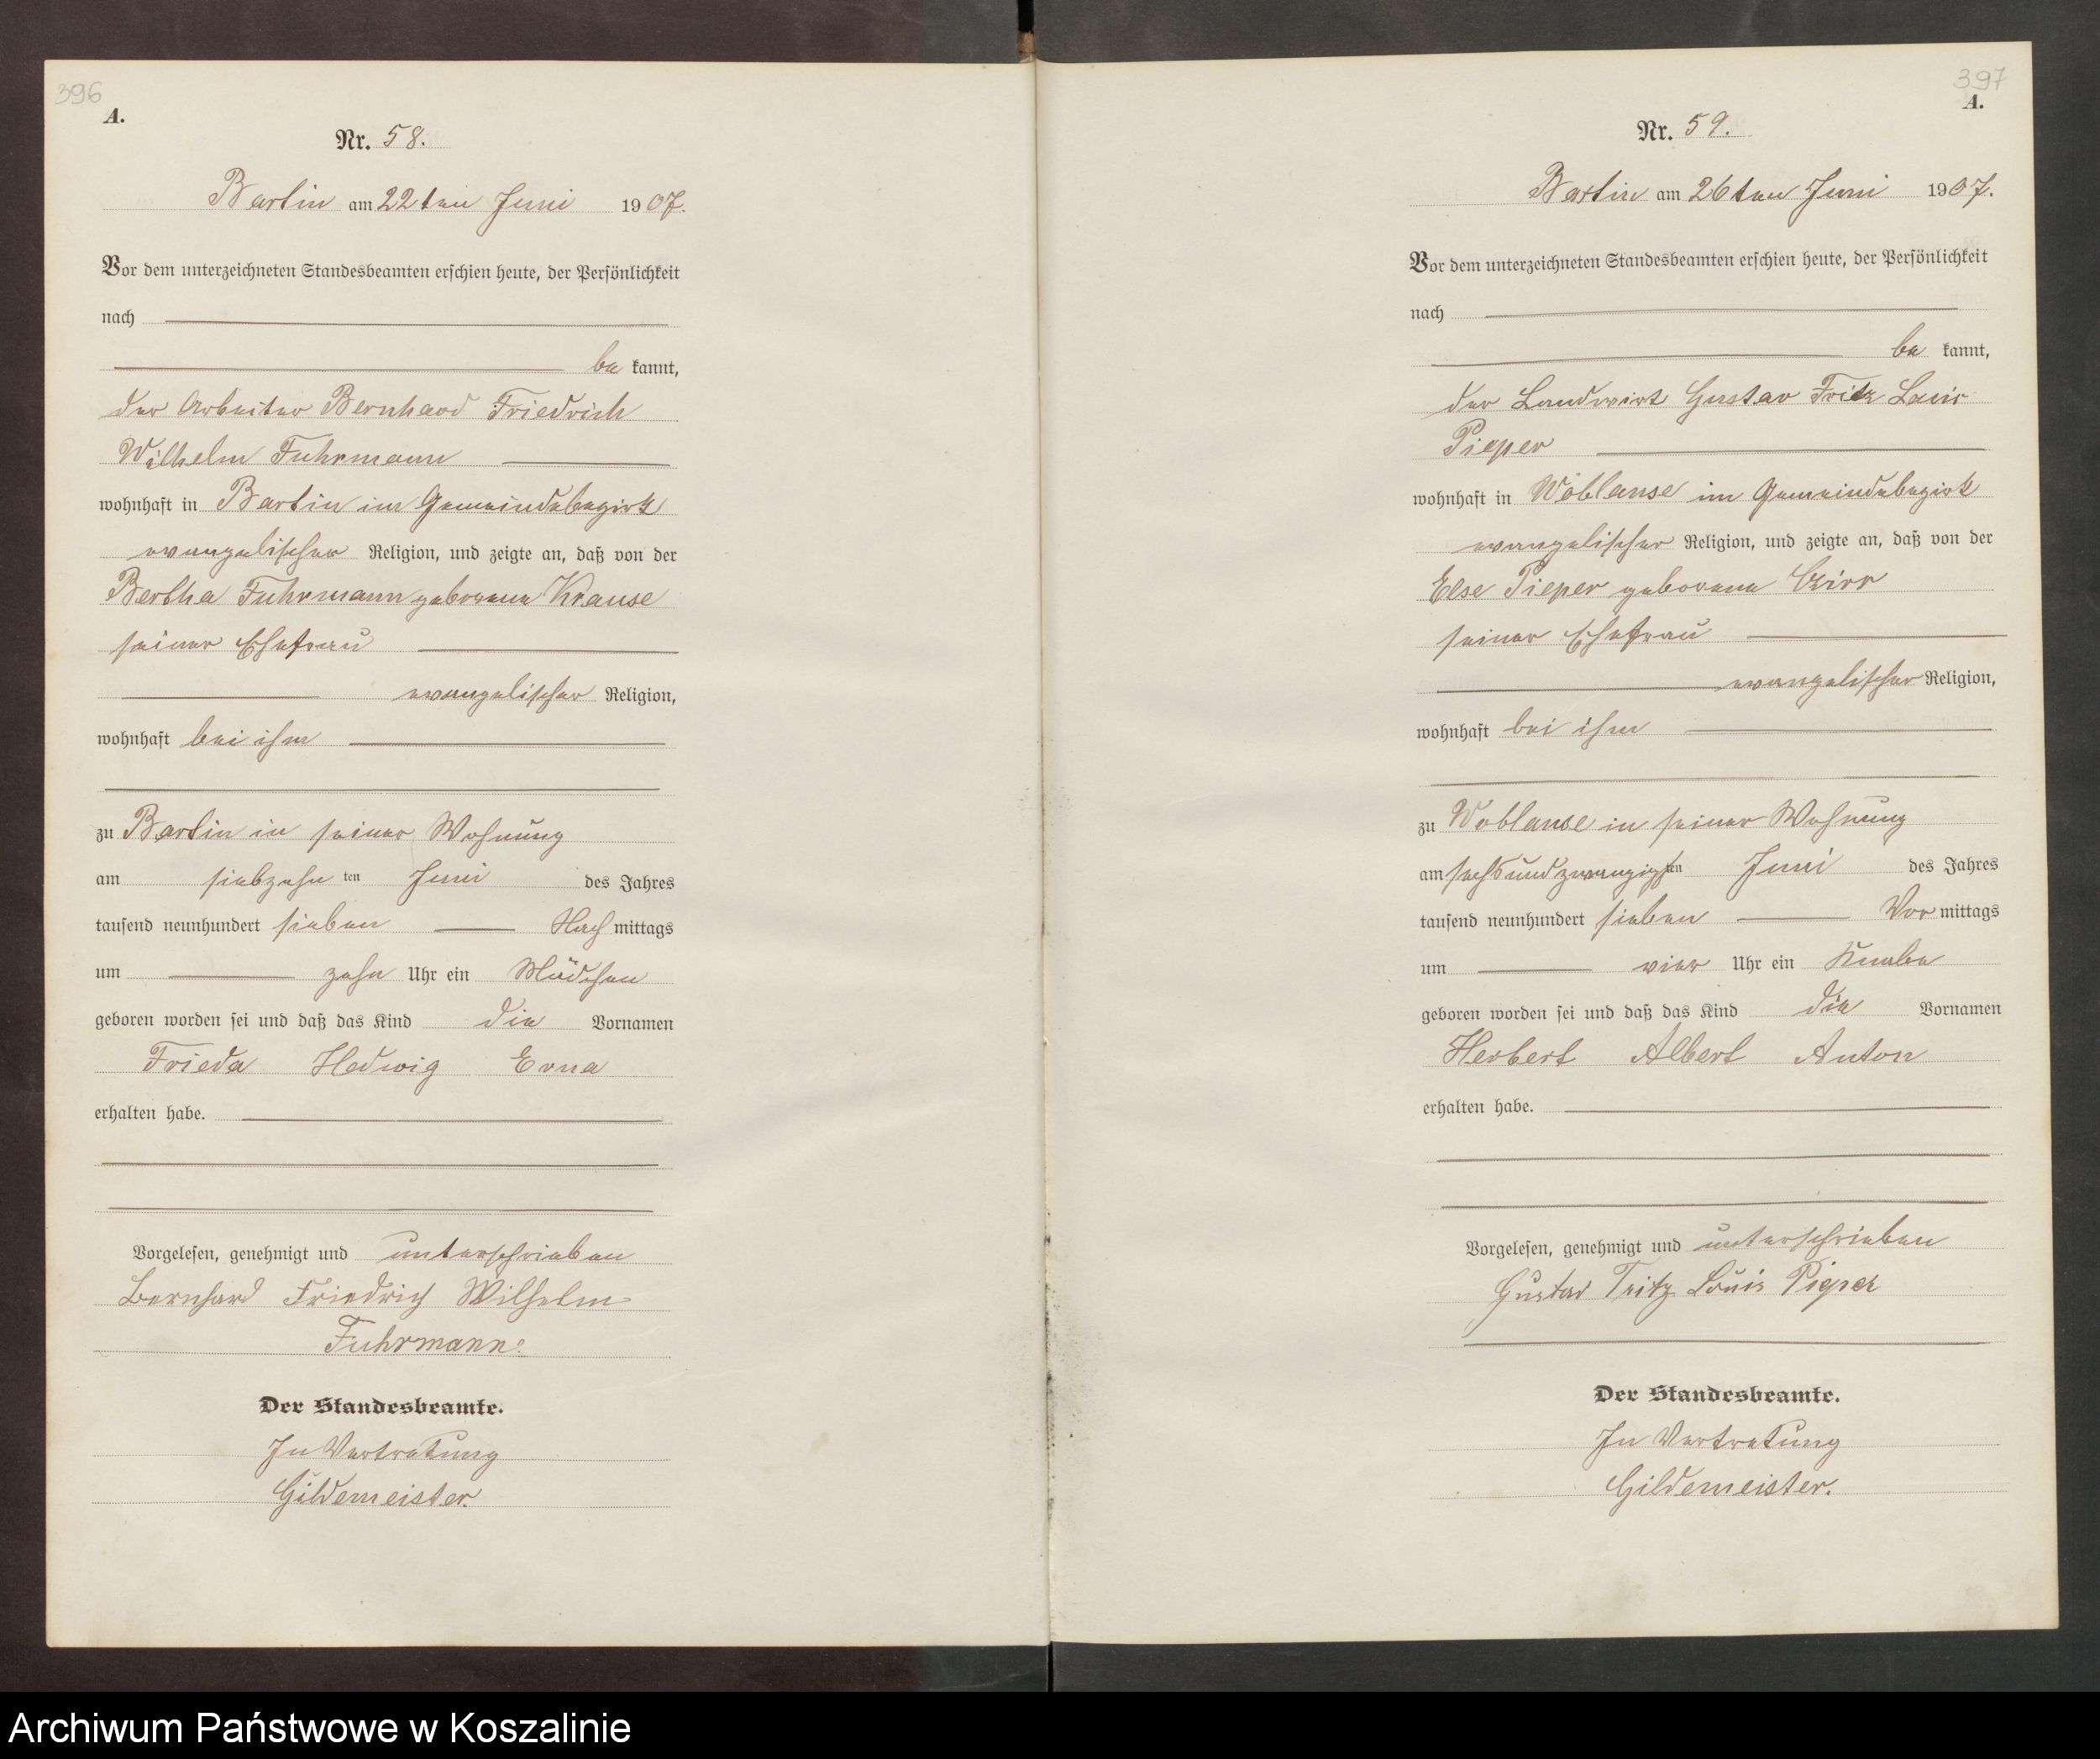 396
A.
Nr. 58.
Bartin am 22ten Juni 1907.
Vor dem unterzeichneten Standesbeamten erschien heute, der Persönlichkeit
nach
be kannt,
der Arbeiter Bernhard Friedrich
Wilhelm Fuhrmann
wohnhaft in Bartin im Gemeindebezirk
evangelischer Religion, und zeigte an, daß von der
Bertha Fuhrmann geborene Krause
seiner Ehefrau
evangelischer Religion,
wohnhaft bei ihm
zu Bartin in seiner Wohnung
am siebzehn ten Juni des Jahres
tausend neunhundert sieben Nach mittags
um zehn Uhr ein Mädchen
geboren worden sei und daß das Kind die Vornamen
Frieda Hedwig Erna
erhalten habe.
Vorgelesen, genehmigt und unterschrieben
Bernhard Friedrich Wilhelm
Fuhrmann.
Der Standesbeamte.
In Vertretung
Gildemeister.
397
A.
Nr. 59.
Bartin am 26ten Juni 1907.
Vor dem unterzeichneten Standesbeamten erschien heute, der Persönlichkeit
nach
be kannt,
der Landwirt Gustav Fritz Louis
Pieper
wohnhaft in Woblanse im Gemeindebezirk
evangelischer Religion, und zeigte an, daß von der
Else Pieper geborene
seiner Ehefrau
evangelischer Religion,
wohnhaft bei ihm
zu Woblanse in seiner Wohnung
am sechsundzwanzigsten Juni des Jahres
tausend neunhundert sieben Vor mittags
um vier Uhr ein Knabe
geboren worden sei und daß das Kind die Vornamen
Herbert Albert Anton
erhalten habe.
Vorgelesen, genehmigt und unterschrieben
Gustav Fritz Louis Pieper
Der Standesbeamte.
In Vertretung
Gildemeister.
Archiwum Państwowe w Koszalinie